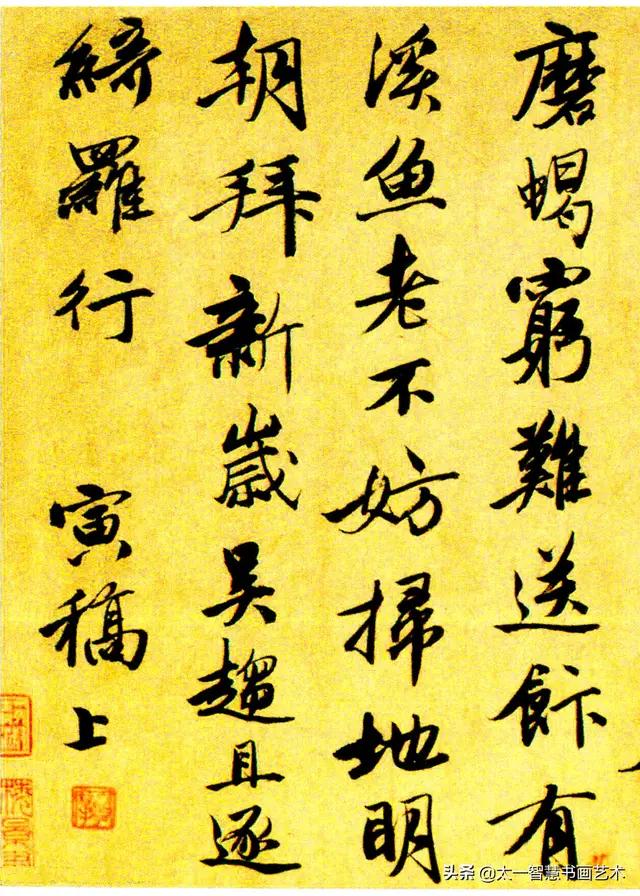 磨蝎窮難送飰有
溪魚老不妨掃地明
朝拜新嵗吳趨且逐
綺羅行 寅稿上
头条 @太一智慧书画艺术